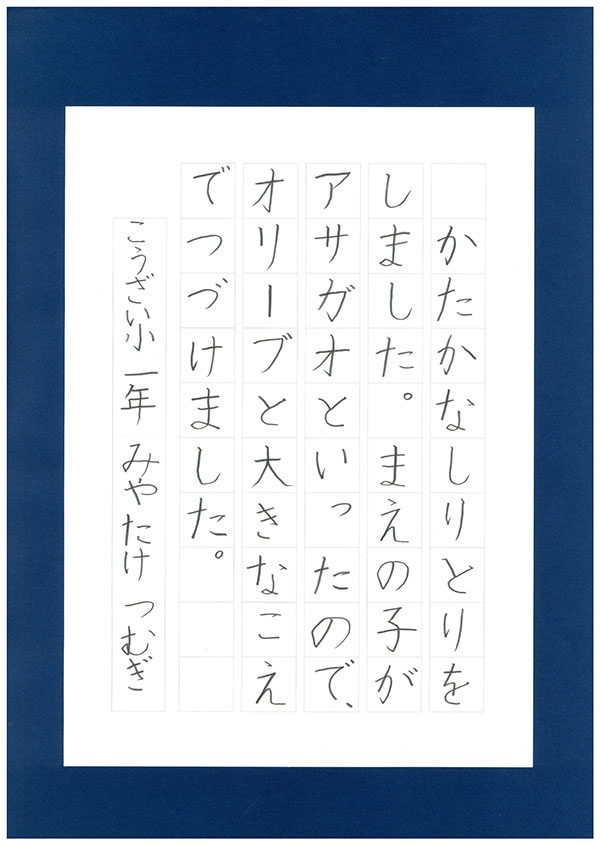 かたかなしりとりを
しました。まえの子が
アサガオといったので、
オリーブと大きなこえ
でつづけました。
こうざい小 一年 みやたけ つむぎ